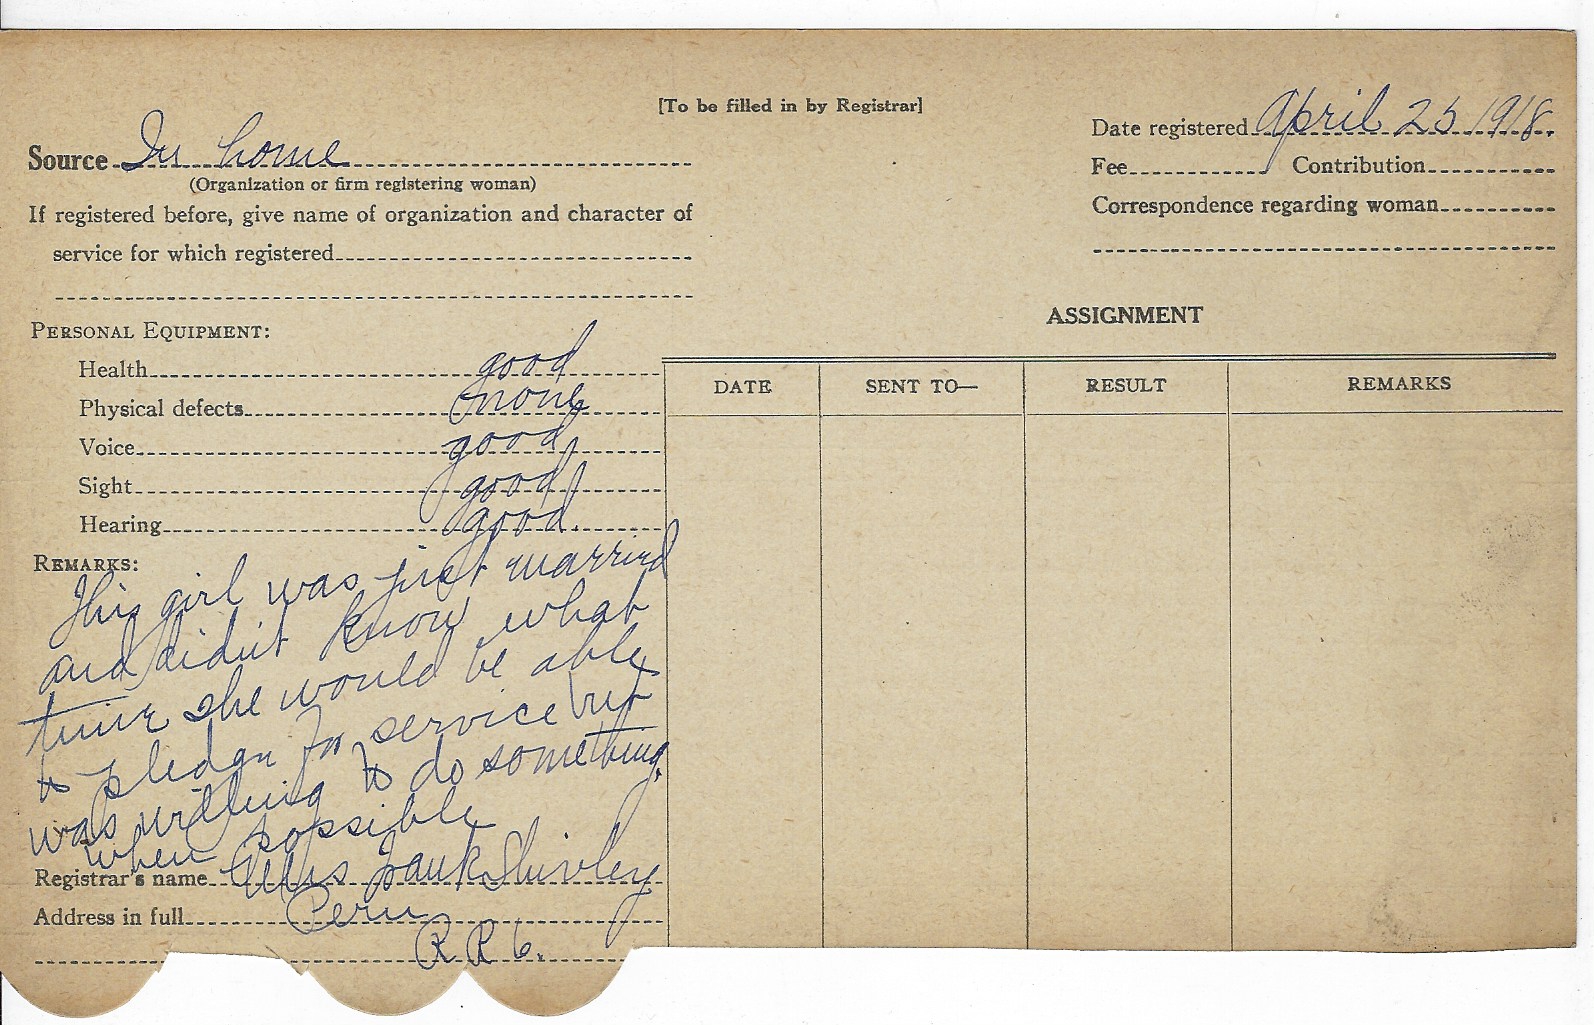 [To be filled in by Registrar]
Date registered April 25 1918.
Source In home
(Organization or firm registering woman)
Fee Contribution
If registered before, give name of organization and character of
service for which registered
Correspondence regarding woman
ASSIGNMENT
PERSONAL EQUIPMENT:
Health good
Physical defects none
Voice good
Sight good
Hearing good.
DATE SENT TO— RESULT REMARKS
REMARKS:
This girl was just married
and didn't know what
time she would be able
to pledge for service but
was willing to do something
when possible
Registrar's name Shivley
Address in full Peru
R R 6.